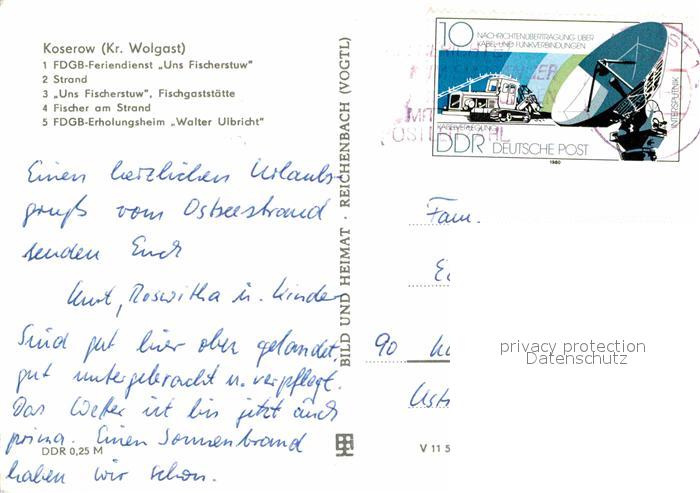 Koserow (Kr. Wolgast)
1 FDGB-Feriendienst „Uns Fischerstuw"
2 Strand
3 „Uns Fischerstuw", Fischgaststätte
4 Fischer am Strand
5 FDGB-Erholungsheim „Walter Ulbricht"
Einen herzlichen Urlaubs-
gruß vom Ostseestrand
senden Euch
Kurt, Roswitha u. Kinder
Sind gut hier oben gelandet,
gut untergebracht u. verpflegt.
Das Wetter ist bis jetzt auch
prima. Einen Sonnenbrand
haben wir schon.
DDR 0,25 M
BILD UND HEIMAT · REICHENBACH (VOGTL)
V 11 5
10
NACHRICHTENÜBERTRAGUNG ÜBER
KABEL-UND FUNKVERBINDUNGEN
INTERSPUTNIK
KABELVERLEGUNG
DDR DEUTSCHE POST
1980
Fam.
90
privacy protection
Datenschutz